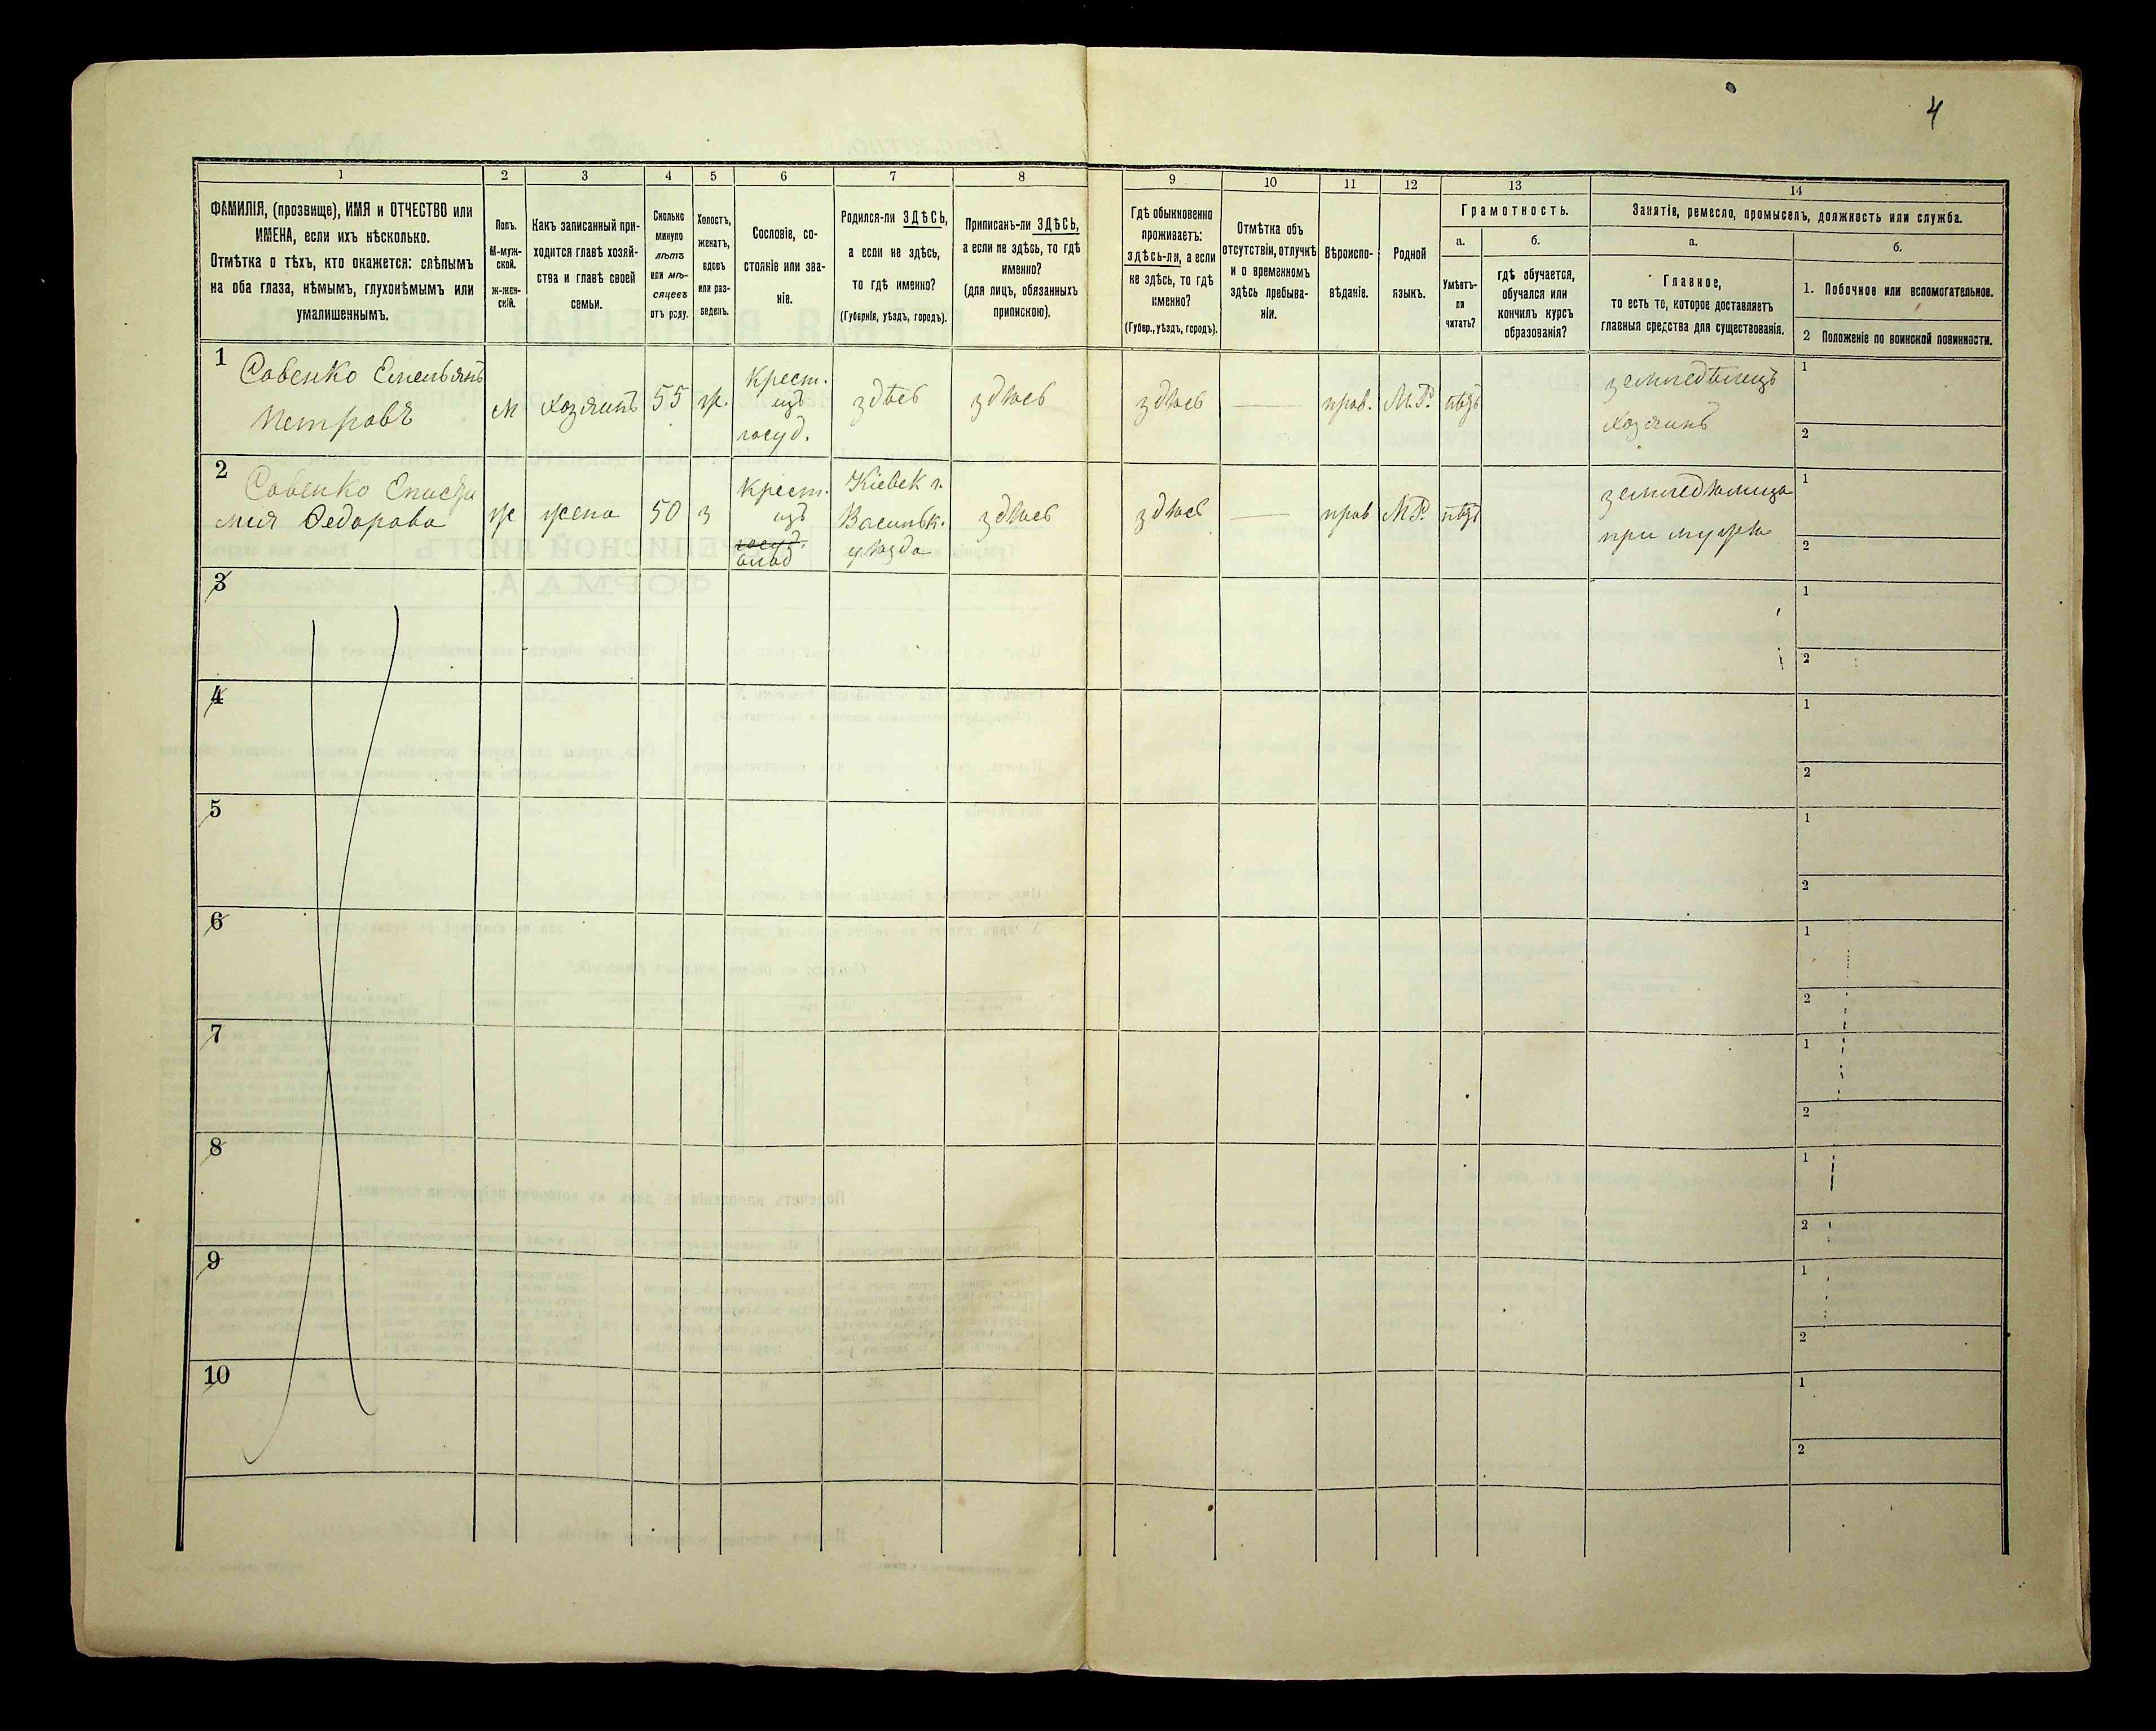 4
1
2
3
4
5
6
7
8
9
10
11
12
13
14
ФАМИЛІЯ, (прозвище), ИМЯ и ОТЧЕСТВО или
ИМЕНА, если ихъ нѣсколько.
Отмѣтка о тѣхъ, кто окажется: слѣпымъ
на оба глаза, нѣмымъ, глухонѣмымъ или
умалишеннымъ.
Полъ.
М-муж-
ской.
ж-жен-
скій.
Какъ записанный при-
ходится главѣ хозяй-
ства и главѣ своей
семьи.
Сколько
минуло
лѣтъ
или мѣ-
сяцевъ
отъ роду.
Холостъ,
женатъ,
вдовъ
или раз-
веденъ.
Сословіе, со-
стояніе или зва-
ніе.
Родился-ли ЗДѢСЬ,
а если не здѣсь,
то гдѣ именно?
(Губернія, уѣздъ, городъ).
Приписанъ-ли ЗДѢСЬ,
а если не здѣсь, то гдѣ
именно?
(для лицъ, обязанныхъ
припискою).
Гдѣ обыкновенно
проживаетъ:
здѣсь-ли, а если
не здѣсь, то гдѣ
именно?
(Губер., уѣздъ, городъ).
Отмѣтка объ
отсутствіи, отлучкѣ
и о временномъ
здѣсь пребыва-
ніи.
Вѣроиспо-
вѣданіе.
Родной
языкъ.
Грамотность.
а.
Умѣетъ-
ли
читать?
б.
гдѣ обучается,
обучался или
кончилъ курсъ
образованія?
Занятіе, ремесло, промыселъ, должность или служба.
а.
Главное,
то есть то, которое доставляетъ
главныя средства для существованія.
б.
1. Побочное или вспомогательное.
2 Положеніе по воинской повинности.
1
Савенко Емельянъ
Петровъ
М
хозяинъ
55
ж.
крест.
изъ
госуд.
здѣсь
здѣсь
здѣсь
прав.
М.Р.
нѣтъ
земледѣлецъ
хозяинъ
1
2
2
Савенко
мія Федорова
ж
жена
50
з
крест.
изъ
госуд.
влад
Кіевск г.
Васильк.
уѣзда
здѣсь
здѣсь
прав
М.Р.
нѣтъ
земледѣлица
при мужѣ
1
2
3
1
2
4
1
2
5
1
2
6
1
2
7
1
2
8
1
2
9
1
2
10
1
2